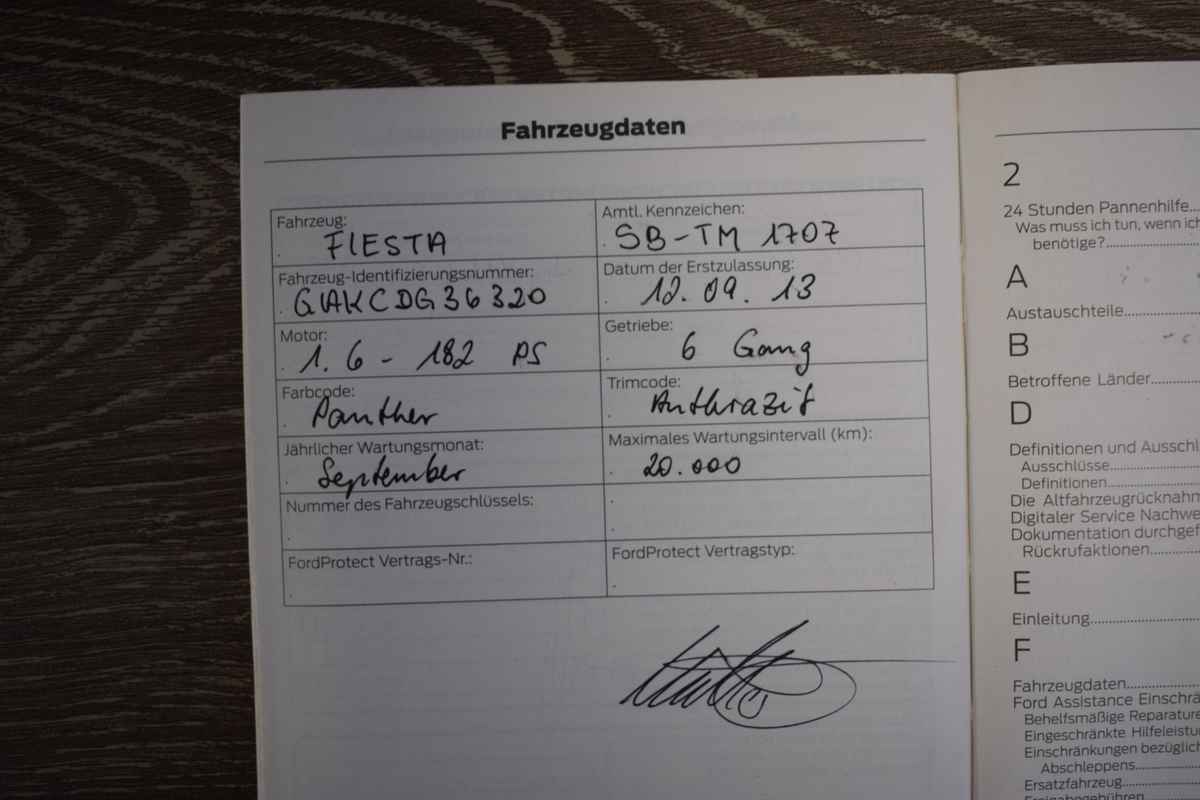 Fahrzeugdaten
Fahrzeug:
FIESTA
Amtl. Kennzeichen:
SB-TM 1707
Fahrzeug-Identifizierungsnummer:
GAKCDG36320
Datum der Erstzulassung:
12.09.13
Motor:
1.6 - 182 PS
Getriebe:
6 Gang
Farbcode:
Panther
Trimcode:
Anthrazit
Jährlicher Wartungsmonat:
September
Maximales Wartungsintervall (km):
20.000
Nummer des Fahrzeugschlüssels:
FordProtect Vertrags-Nr.:
FordProtect Vertragstyp:
2
24 Stunden Pannenhilfe...
Was muss ich tun, wenn ich
benötige?...............
A
Austauschteile...............
B
Betroffene Länder...........
D
Definitionen und Ausschl
Ausschlüsse................
Definitionen................
Die Altfahrzeugrücknahm
Digitaler Service Nachwe
Dokumentation durchgef
Rückrufaktionen...........
E
Einleitung.....................
F
Fahrzeugdaten..............
Ford Assistance Einschrä
Behelfsmäßige Reparature
Eingeschränkte Hilfeleistu
Einschränkungen bezüglich
Abschleppens............
Ersatzfahrzeug.............
Freigabegebühren